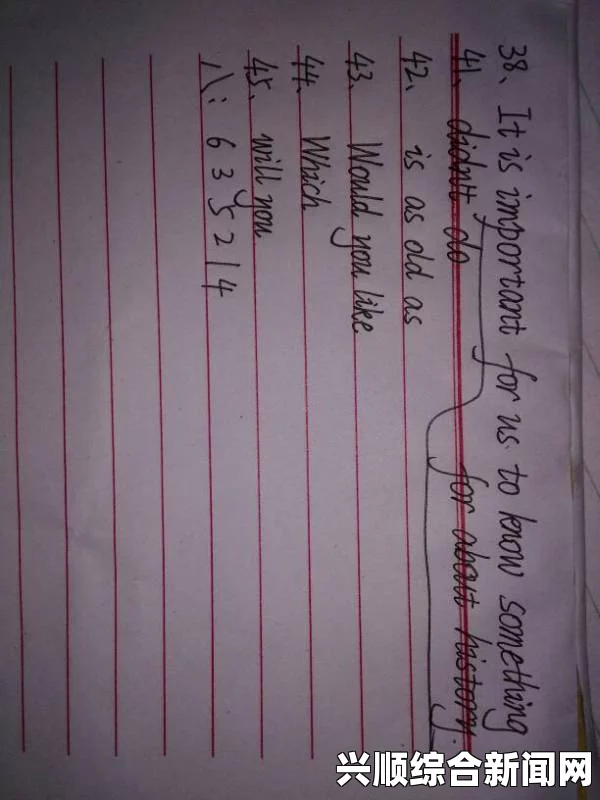 38、It is important for us to know something
41、didn't do for about history.
42、is as old as
43、Would you like
44、Which
45、will you
八: 6 3 5 2 1 4
兴顺综合新闻网